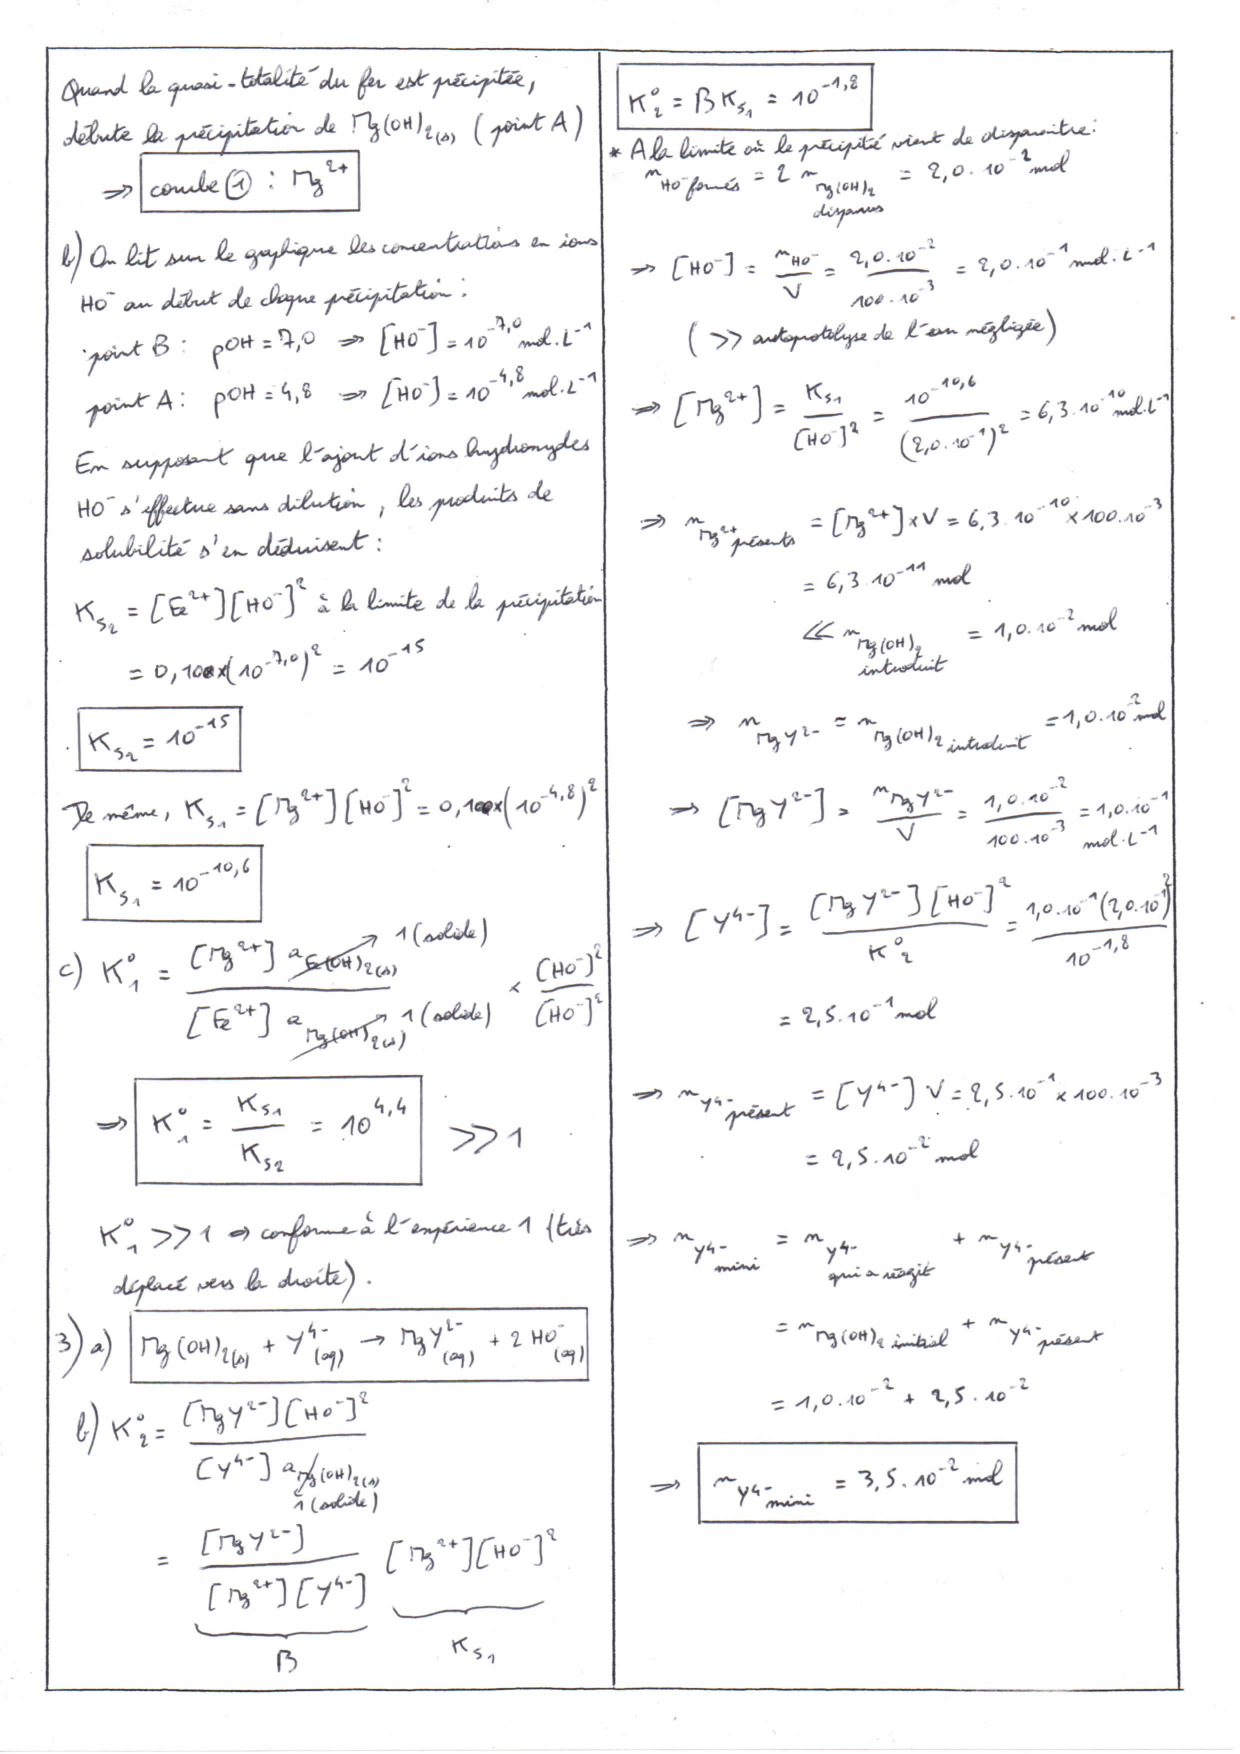 Quand la quasi-totalité du fer est précipitée,
débute la précipitation de Mg(OH)₂(s) (point A)
⇒ courbe ① : Mg²⁺
b) On lit sur le graphique les concentrations en ions
HO⁻ au début de chaque précipitation :
point B : pOH = 7,0 ⇒ [HO⁻] = 10⁻⁷,⁰ mol.L⁻¹
point A : pOH = 4,8 ⇒ [HO⁻] = 10⁻⁴,⁸ mol.L⁻¹
En supposant que l'ajout d'ions hydroxydes
HO⁻ s'effectue sans dilution, les produits de
solubilité s'en déduisent :
Ks₂ = [Fe²⁺][HO⁻]² à la limite de la précipitation
= 0,10 × (10⁻⁷,⁰)² = 10⁻¹⁵
Ks₂ = 10⁻¹⁵
De même, Ks₁ = [Mg²⁺][HO⁻]² = 0,10 × (10⁻⁴,⁸)²
Ks₁ = 10⁻¹⁰,⁶
c) K₁° = [Mg²⁺] a Fe(OH)₂(s) → 1 (solide) / [Fe²⁺] a Mg(OH)₂(s) → 1 (solide) × [HO⁻]² / [HO⁻]²
⇒ K₁° = Ks₁ / Ks₂ = 10⁴,⁴ >> 1
K₁° >> 1 ⇒ conforme à l'expérience 1 (très
déplacé vers la droite).
3) a) Mg(OH)₂(s) + Y⁴⁻(aq) → MgY²⁻(aq) + 2 HO⁻(aq)
b) K₂° = [MgY²⁻][HO⁻]² / [Y⁴⁻] a Mg(OH)₂(s)
1 (solide)
= [MgY²⁻] / [Mg²⁺][Y⁴⁻] [Mg²⁺][HO⁻]²
β Ks₁
K₂° = β Ks₁ = 10⁻¹,⁸
* A la limite où le précipité vient de disparaitre :
n HO⁻ formés = 2 n Mg(OH)₂ disparus = 2,0.10⁻² mol
⇒ [HO⁻] = n HO⁻ / V = 2,0.10⁻² / 100.10⁻³ = 2,0.10⁻¹ mol.L⁻¹
(>> autoprotolyse de l'eau négligée)
⇒ [Mg²⁺] = Ks₁ / [HO⁻]² = 10⁻¹⁰,⁶ / (2,0.10⁻¹)² = 6,3.10⁻¹⁰ mol.L⁻¹
⇒ n Mg²⁺ présents = [Mg²⁺] × V = 6,3.10⁻¹⁰ × 100.10⁻³
= 6,3.10⁻¹¹ mol
<< n Mg(OH)₂ introduit = 1,0.10⁻² mol
⇒ n MgY²⁻ = n Mg(OH)₂ introduit = 1,0.10⁻² mol
⇒ [MgY²⁻] = n MgY²⁻ / V = 1,0.10⁻² / 100.10⁻³ = 1,0.10⁻¹ mol.L⁻¹
⇒ [Y⁴⁻] = [MgY²⁻][HO⁻]² / K₂° = 1,0.10⁻¹ (2,0.10⁻¹)² / 10⁻¹,⁸
= 2,5.10⁻¹ mol
⇒ n Y⁴⁻ présent = [Y⁴⁻] V = 2,5.10⁻¹ × 100.10⁻³
= 2,5.10⁻² mol
⇒ n Y⁴⁻ mini = n Y⁴⁻ qui a réagit + n Y⁴⁻ présent
= n Mg(OH)₂ initial + n Y⁴⁻ présent
= 1,0.10⁻² + 2,5.10⁻²
⇒ n Y⁴⁻ mini = 3,5.10⁻² mol